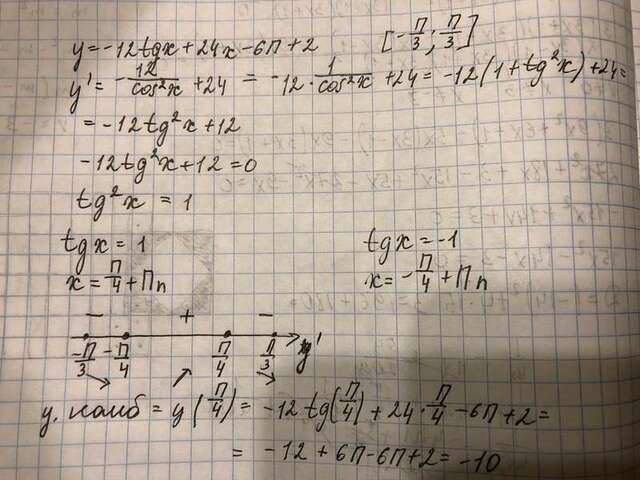 y = -12tgx + 24x - 6П + 2 [-П/3; П/3]
y' = -12/cos²x + 24 = -12 · 1/cos²x + 24 = -12(1 + tg²x) + 24 =
= -12tg²x + 12
-12tg²x + 12 = 0
tg²x = 1
tgx = 1 tgx = -1
x = П/4 + Пn x = -П/4 + Пn
- + -
-П/3 -П/4 П/4 П/3 y'
y наиб = y(П/4) = -12tg(П/4) + 24 · П/4 - 6П + 2 =
= -12 + 6П - 6П + 2 = -10